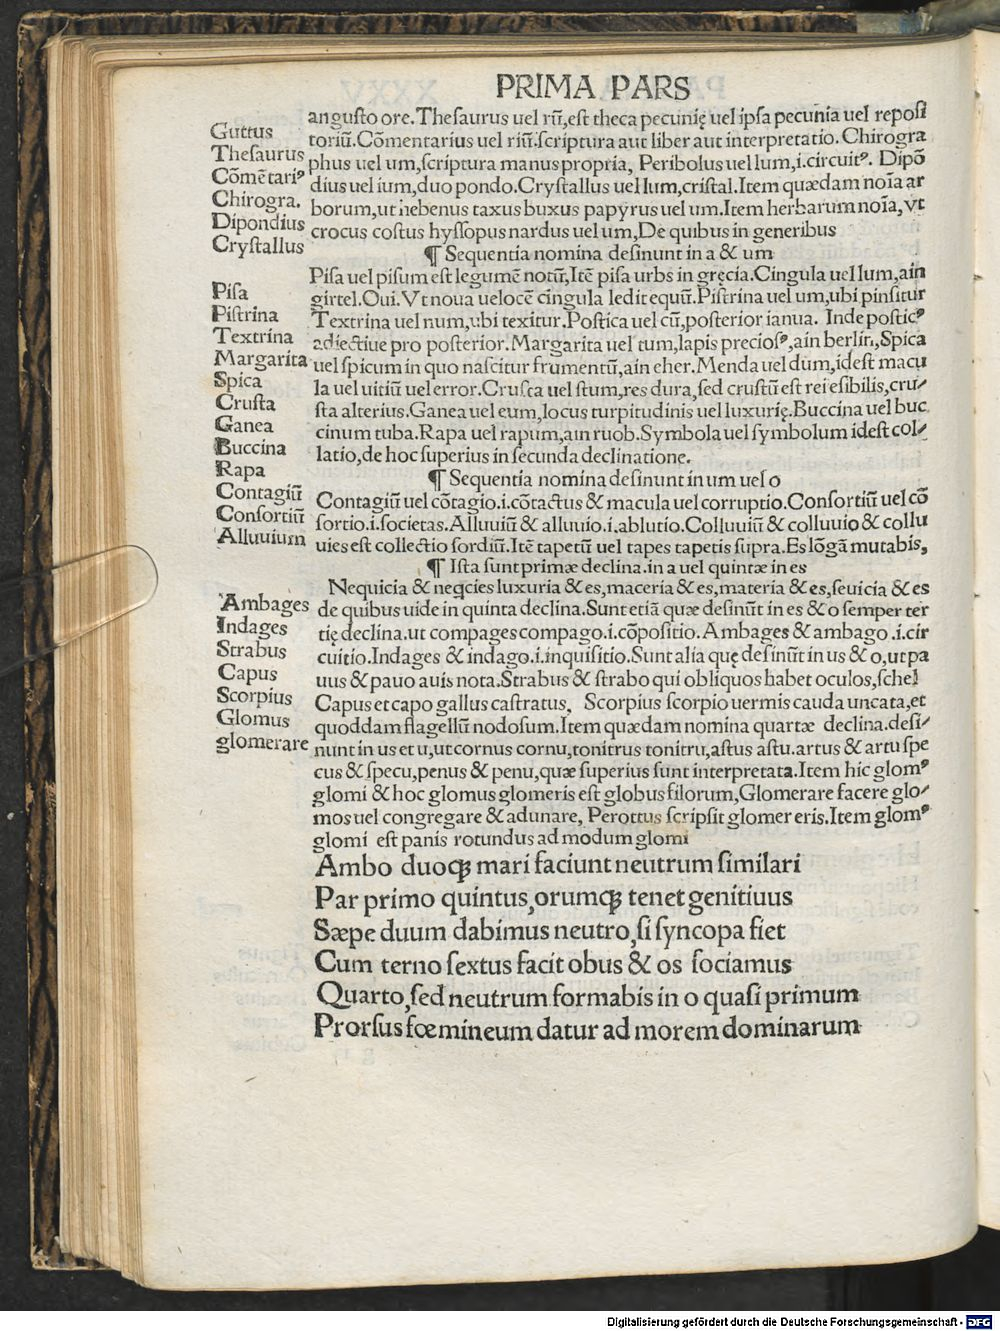 PRIMA PARS
angusto ore. Thesaurus uel rū, est theca pecunię uel ipsa pecunia uel reposi
toriū. Cōmentarius uel riū. scriptura aut liber aut interpretatio. Chirogra
phus uel um, scriptura manus propria, Peribolus uel lum, i. circuitꝰ. Dipō
dius uel ium, duo pondo. Crystallus uel lum, cristal. Item quædam noīa ar
borum, ut hebenus taxus buxus papyrus uel um. Item herbarum noīa, vt
crocus costus hyssopus nardus uel um, De quibus in generibus
¶ Sequentia nomina desinunt in a & um
Pisa uel pisum est legumē notū, Itē pisa urbs in gręcia. Cingula uel lum, ain
girtel. Oui. Vt noua uelocē cingula ledit equū. Pistrina uel um, ubi pinsitur
Textrina uel num, ubi texitur. Postica uel cū, posterior ianua. Inde posticꝰ
adiectiue pro posterior. Margarita uel tum, lapis preciosꝰ, ain berlin, Spica
uel spicum in quo nascitur frumentū, ain eher. Menda uel dum, idest macu
la uel uitiū uel error. Crusta uel stum, res dura, sed crustū est rei esibilis, cru⸗
sta alterius. Ganea uel eum, locus turpitudinis uel luxurię. Buccina uel buc
cinum tuba. Rapa uel rapum, ain ruob. Symbola uel symbolum idest col⸗
latio, de hoc superius in secunda declinatione.
¶ Sequentia nomina desinunt in um uel o
Contagiū uel cōtagio. i. cōtactus & macula uel corruptio. Consortiū uel cō
sortio. i. societas. Alluuiū & alluuio. i. ablutio. Colluuiū & colluuio & collu
uies est collectio sordiū. Itē tapetū uel tapes tapetis supra. Es lōgā mutabis,
¶ Ista sunt primæ declina. in a uel quintæ in es
Nequicia & neq̄cies luxuria & es, maceria & es, materia & es, seuicia & es
de quibus uide in quinta declina. Sunt etiā quæ desinūt in es & o semper ter
tię declina. ut compages compago. i. cōpositio. Ambages & ambago. i. cir
cuitio. Indages & indago. i. inquisitio. Sunt alia quę desinūt in us & o, ut pa
uus & pauo auis nota. Strabus & strabo qui obliquos habet oculos, schel
Capus et capo gallus castratus, Scorpius scorpio uermis cauda uncata, et
quoddam flagellū nodosum. Item quædam nomina quartæ declina. desi⸗
nunt in us et u, ut cornus cornu, tonitrus tonitru, astus astu. artus & artu spe
cus & specu, penus & penu, quæ superius sunt interpretata. Item hic glomꝰ
glomi & hoc glomus glomeris est globus filorum, Glomerare facere glo⸗
mos uel congregare & adunare, Perottus scripsit glomer eris. Item glomꝰ
glomi est panis rotundus ad modum glomi
Ambo duoqꝫ mari faciunt neutrum similari
Par primo quintus, orumqꝫ tenet genitiuus
Sæpe duum dabimus neutro, si syncopa fiet
Cum terno sextus facit obus & os sociamus
Quarto, sed neutrum formabis in o quasi primum
Prorsus fœmineum datur ad morem dominarum
Guttus
Thesaurus
Cōmētariꝰ
Chirogra.
Dipondius
Crystallus
Pisa
Pistrina
Textrina
Margarita
Spica
Crusta
Ganea
Buccina
Rapa
Contagiū
Consortiū
Alluuium
Ambages
Indages
Strabus
Capus
Scorpius
Glomus
glomerare
Digitalisierung gefördert durch die Deutsche Forschungsgemeinschaft - DFG